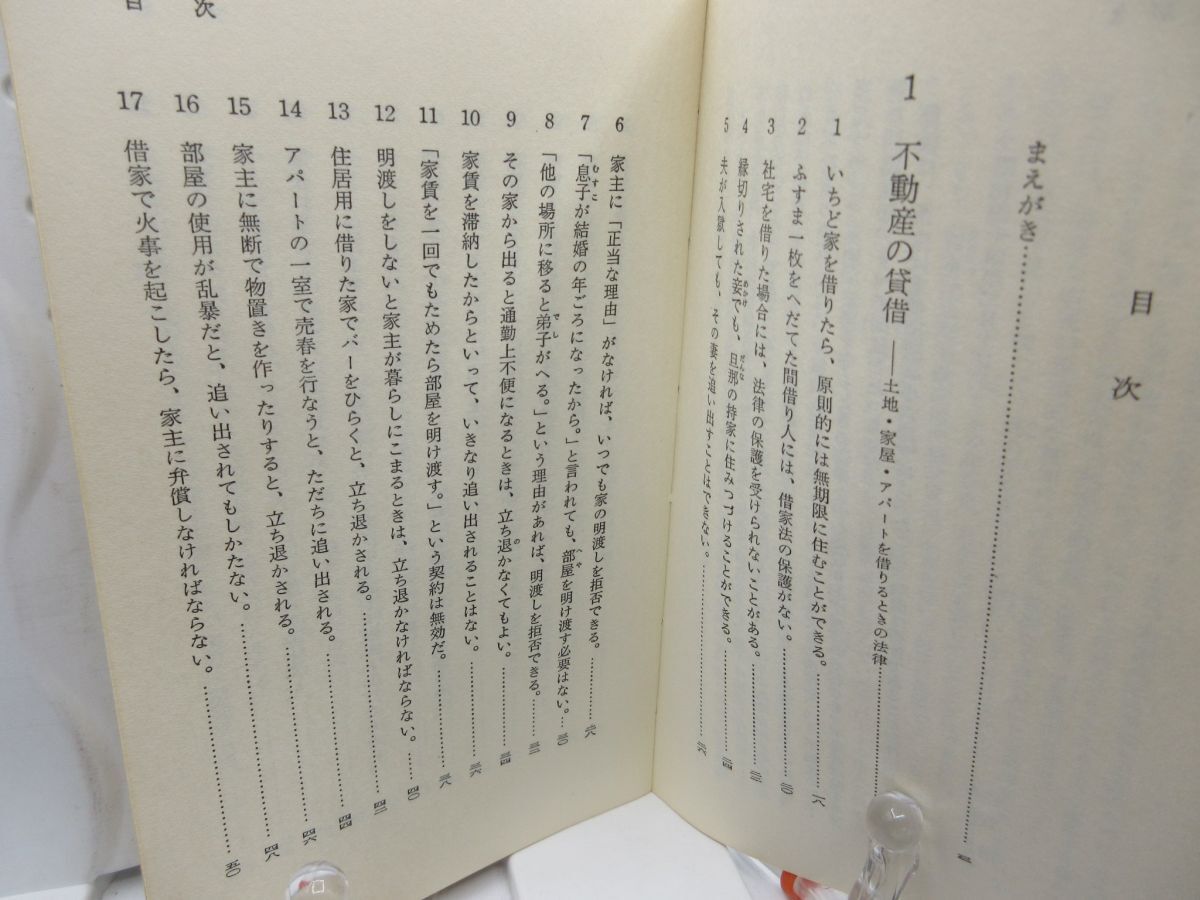 目次
まえがき……………………
1 不動産の貸借 ——土地・家屋・アパートを借りるときの法律……………
1 いちど家を借りたら、原則的には無期限に住むことができる。……………一八
2 ふすま一枚をへだてた間借り人には、借家法の保護がない。……………二〇
3 社宅を借りた場合には、法律の保護を受けられないことがある。……………二二
4 縁切りされた妾でも、旦那の持家に住みつづけることができる。……………二四
5 夫が入獄しても、その妻を追い出すことはできない。……………二六
目次
6 家主に「正当な理由」がなければ、いつでも家の明渡しを拒否できる。……………二八
7 「息子が結婚の年ごろになったから。」と言われても、部屋を明け渡す必要はない。……三〇
8 「他の場所に移ると弟子がへる。」という理由があれば、明渡しを拒否できる。……三二
9 その家から出ると通勤上不便になるときは、立ち退かなくてもよい。……………三四
10 家賃を滞納したからといって、いきなり追い出されることはない。……………三六
11 「家賃を一回でもためたら部屋を明け渡す。」という契約は無効だ。……………三八
12 明渡しをしないと家主が暮らしにこまるときは、立ち退かなければならない。……四〇
13 住居用に借りた家でバーをひらくと、立ち退かされる。……………四二
14 アパートの一室で売春を行なうと、ただちに追い出される。……………四四
15 家主に無断で物置きを作ったりすると、立ち退かされる。……………四六
16 部屋の使用が乱暴だと、追い出されてもしかたない。……………四八
17 借家で火事を起こしたら、家主に弁償しなければならない。……………五〇